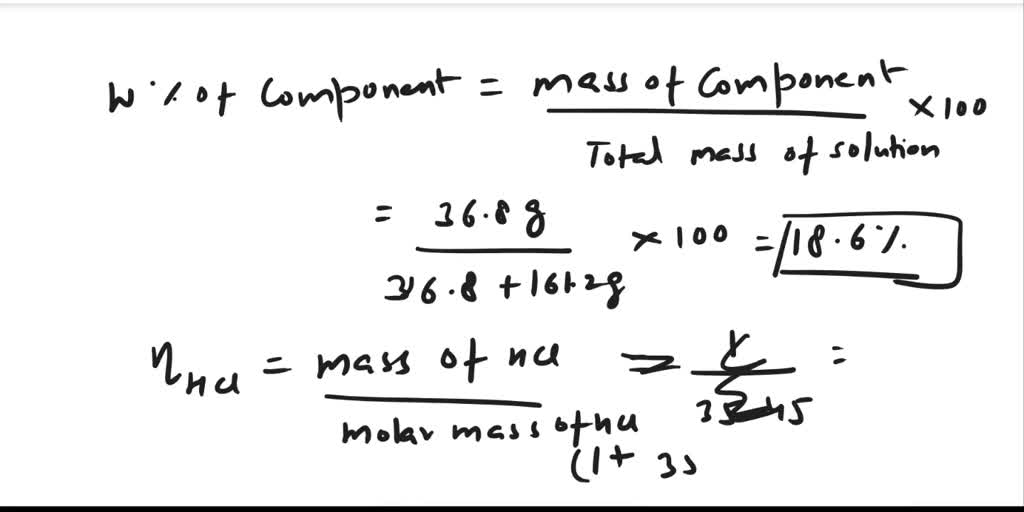 W % of Component = mass of Component × 100
Total mass of solution
= 36.8 g × 100 = 18.6 %
36.8 + 161.2g
nHCl = mass of HCl = =
molar mass of HCl
(1+ 35